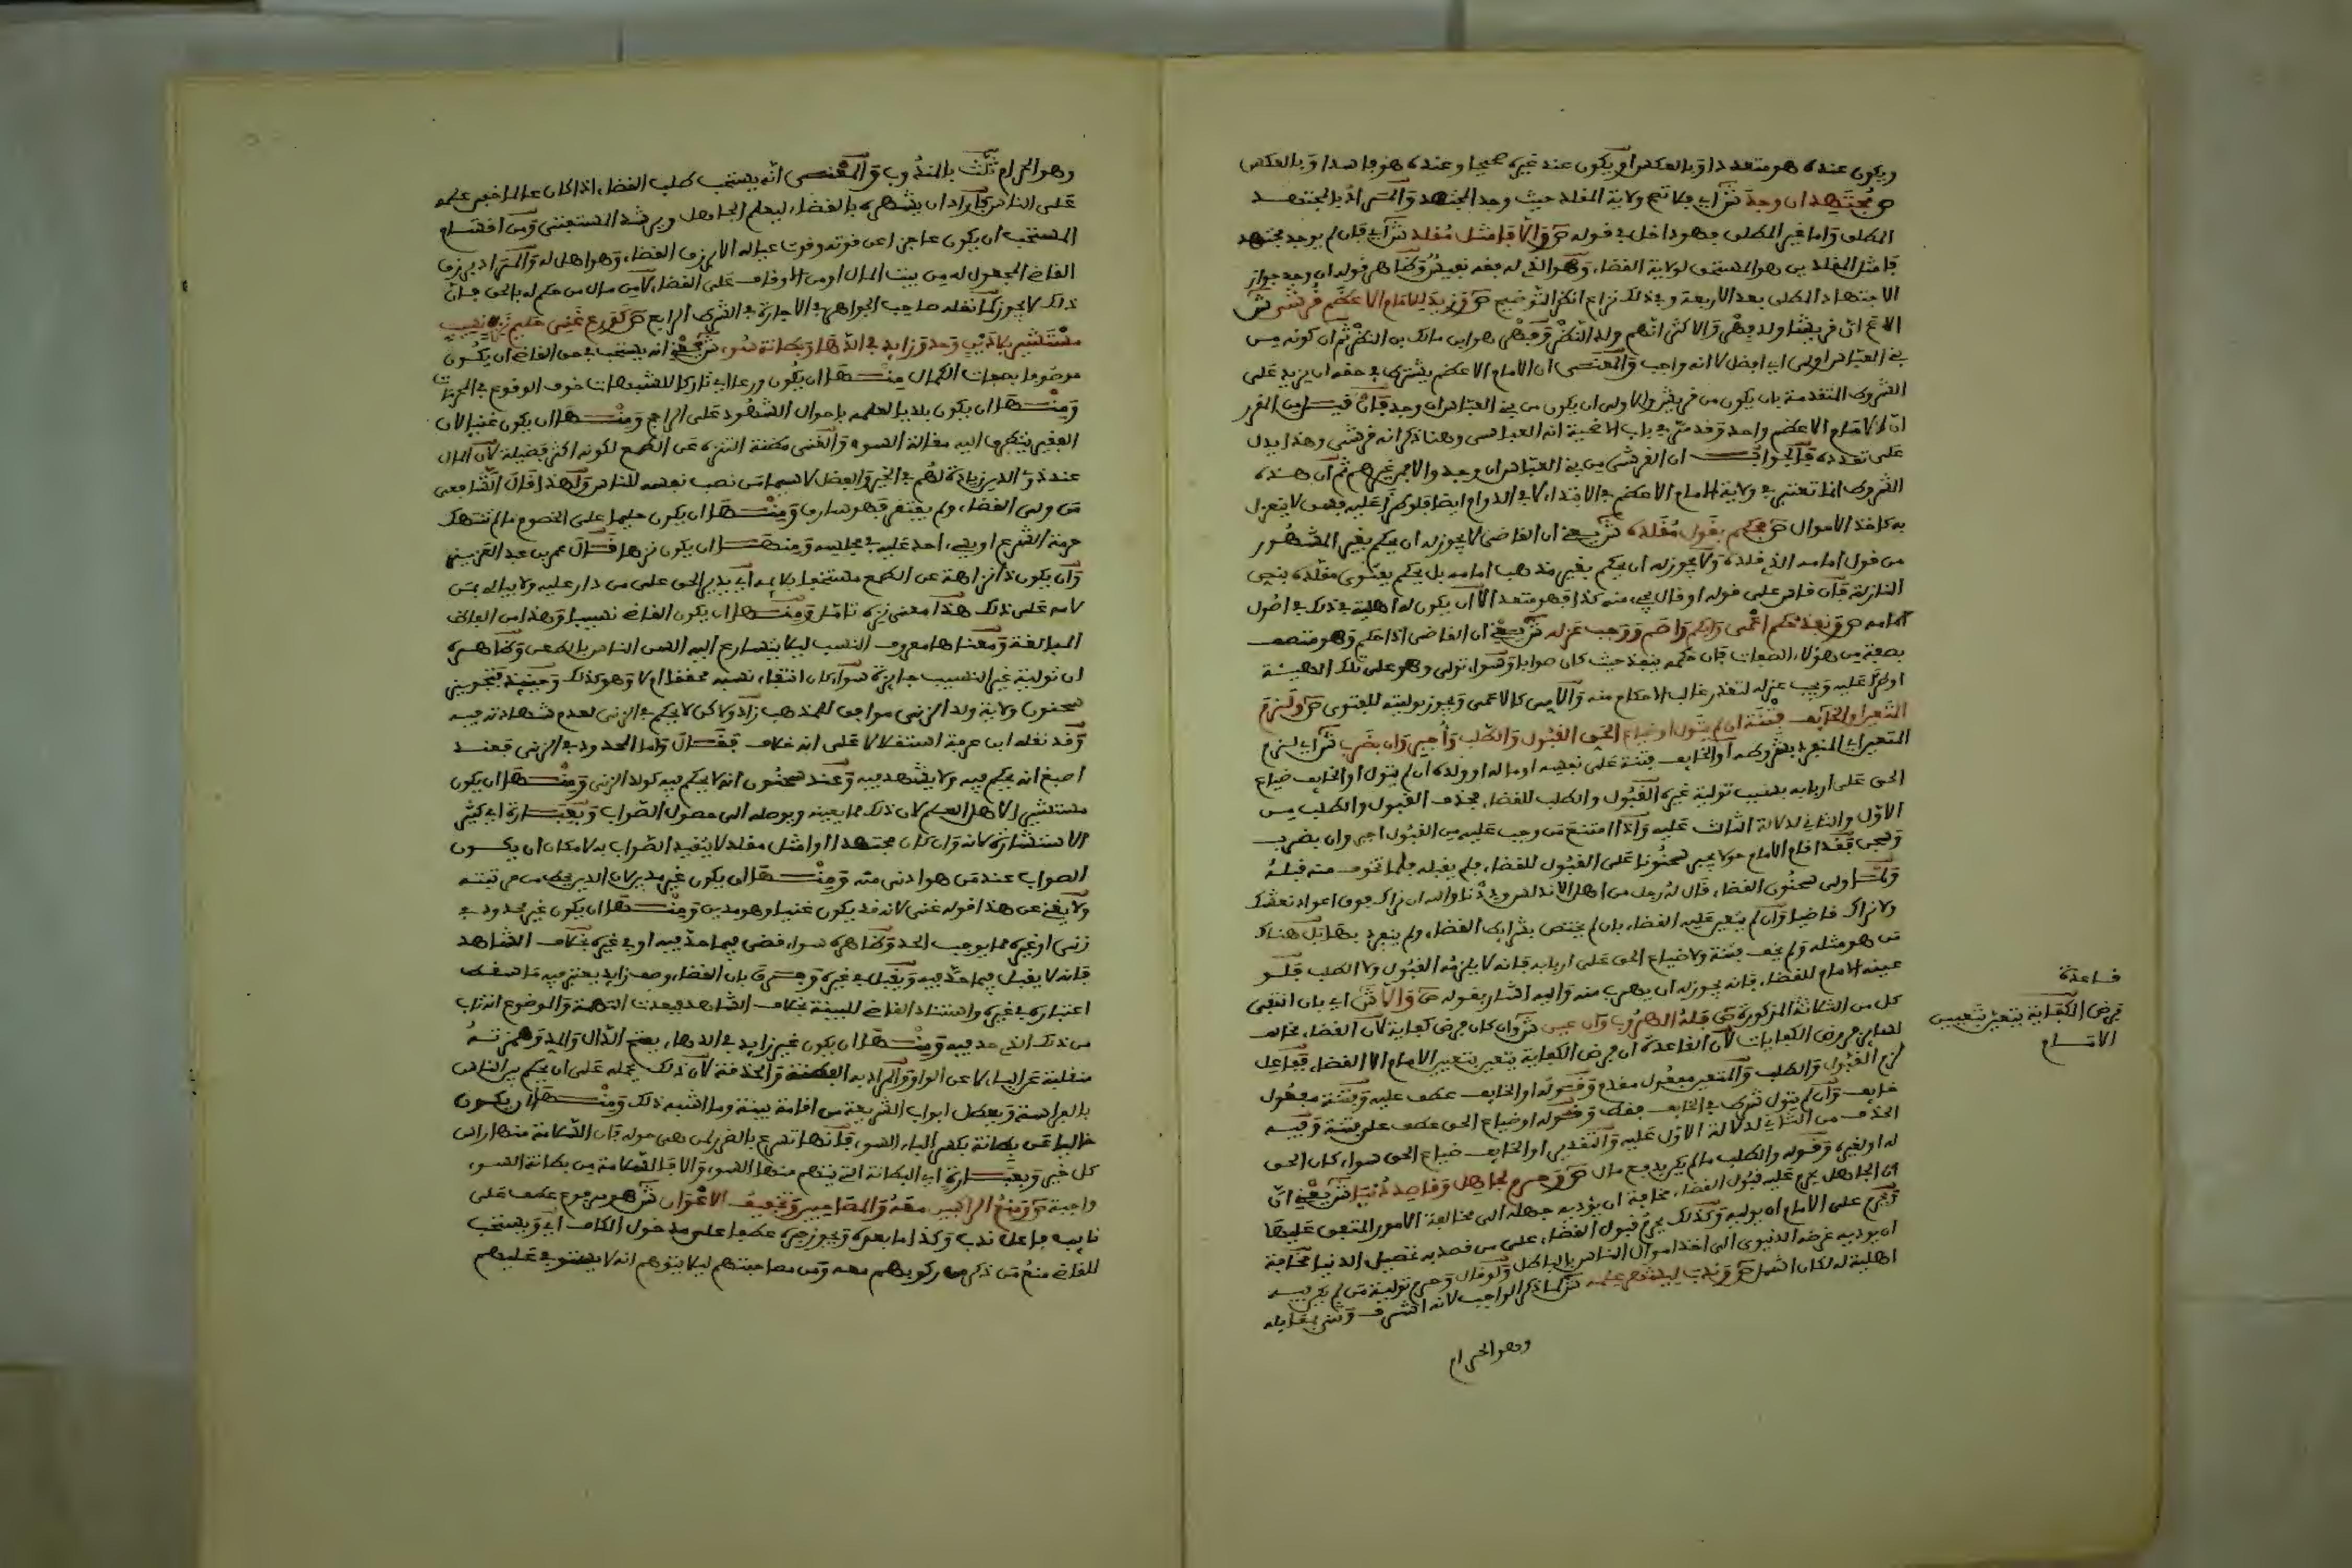 ويكون عنده هو متعددا وبالعكس او يكون عند غيره صحيحا وعنده هو فاسدا وبالعكس
ص مجتهد ان وجد ش اي فلا تصح ولاية المقلد حيث وجد المجتهد والمراد بالمجتهد
المطلق واما غير المطلق فهو داخل في قوله ص والا فامثل مقلد ش اي فان لم يوجد مجتهد
فامثل المقلدين هو المستحق لولاية القضاء وهو الذي له فقه نفيس وظاهر قوله ان وجد جواز
الاجتهاد المطلق بعد الاربعة وفي ذلك نزاع انظر التوضيح ص وزيد للامام الاعظم قرشي ش
الاصح ان قريشا ولد فهر والاكثر انهم ولد النضر وفهر هو ابن مالك بن النضر ثم ان كونه من
بني العباس اولى اي افضل لا انه واجب والمعنى ان الامام الاعظم يشترط في حقه ان يزيد على
الشروط المتقدمة بان يكون من قريش والاولى ان يكون من بني العباس ان وجد فان قيل من المقرر
ان الامام الاعظم واحد وقد مر في باب الاضحية انه العباسي وهنا ذكر انه قرشي وهذا يدل
على تعدده فالجواب ان القرشي من بني العباس ان وجد والا فمن غيرهم ثم ان هذه
الشروط انما تعتبر في ولاية الامام الاعظم في الابتداء لا في الدوام ايضا فلو طرا عليه فسق لا ينعزل
به كاخذ الاموال ص فحكم بقول مقلده ش يعني ان القاضي لا يجوز له ان يحكم بغير المشهور
من قول امامه الذي قلده ولا يجوز له ان يحكم بغير مذهب امامه بل يحكم بفتوى مقلده بنص
النازلة فان قاس على قوله او قال يجيء منه كذا فهو متعد الا ان يكون له اهلية في ذلك في اصول
امامه ص ونفذ حكم اعمى وابكم واصم ووجب عزله ش يعني ان القاضي اذا حكم وهو متصف
بصفة من هؤلاء الصفات فان حكمه ينفذ حيث كان صوابا وسواء تولى وهو على تلك الهيئة
او طرا عليه ويجب عزله لتعذر غالب الاحكام منه والابكم كالاعمى ويجوز توليته للفتوى ص ولزم
المتعين او الخايف فتنة ان لم يتول او ضياع الحق القبول والطلب واجبر وان بضرب ش اي لزم
المتعين اي المنفرد بشروطه او الخايف فتنة على نفسه او ماله او ولده ان لم يتول او الخايف ضياع
الحق على اربابه بسبب تولية غيره القبول والطلب للقضاء فحذف القبول والطلب من
الاول والثاني لدلالة الثالث عليه واذا امتنع من وجب عليه من القبول اجبر وان بضرب
وسجن فقد اقام الامام حولا يجبر سحنونا على القبول للقضاء فلم يقبله فلما تخوف منه قبله
ولما ولي سحنون القضاء قال له رجل من اهل الاندلس وددنا والله ان نراك فوق اعواد نعشك
ولا نراك قاضيا وان لم يتعين عليه القضاء بان لم يختص بشرايط القضاء ولم ينفرد بها بل هناك
من هو مثله ولم يخف فتنة ولا ضياع الحق على اربابه فانه لا يلزمه القبول ولا الطلب فلو
عينه الامام للقضاء فانه يجوز له ان يهرب منه واليه اشار بقوله ص والا ش اي بان انتفى
كل من الثلاثة المذكورة ص فله الهروب وان عين ش وان كان فرض كفاية لان القضاء مخالف
لساير فرض الكفايات لان القاعدة ان فرض الكفاية يتعين بتعيين الامام الا القضاء ففاعل
لزم القبول والطلب والمتعين مفعول مقدم وقوله او الخايف عطف عليه وفتنة مفعول
خايف وان لم يتول شرط في الخايف فقط وقوله او ضياع الحق عطف على فتنة وفيه
الحذف من الثاني لدلالة الاول عليه والتقدير او الخايف ضياع الحق سواء كان الحق
له او لغيره وقوله والطلب ما لم يكن بدفع مال ص وحرم لجاهل وقاصد دنيا ش يعني ان
ان الجاهل يحرم عليه قبول القضاء مخافة ان يؤديه جهله الى مخالفة الامور المتفق عليها
ويحرم على الامام ان يوليه وكذلك يحرم قبول القضاء على من قصد به تحصيل الدنيا مخافة
ان يوديه غرضه الدنيوي الى اخذ اموال الناس بالباطل ولو قال وحرم تولية من لم يكن فيه
اهلية له لكان اشمل ص وندب ليشهر علمه ش لما ذكر الواجب لانه اشرف وثنى بمقابله
وهو الحرام
قاعدة
فرض الكفاية يتعين بتعيين
الامام
وهو الحرام ثلث بالمندوب والمعنى انه يستحب طلب القضاء اذا كان عالما خفي علمه
على الناس فاراد ان يشهره بالقضاء ليعلم الجاهل ويرشد المستفتي ومن اقسام
المستحب ان يكون عاجزا عن قوته وقوت عياله الا برزق القضاء وهو اهل له والمراد برزق
القاضي المجعول له من بيت المال او من الاوقاف على القضاء لا من مال من حكم له بالحق فان
ذلك لا يجوز كما نقله صاحب الجواهر في الاجارة في الشرط الرابع ص كورع غني حليم نزه نسيب
مستشير بلا دين وحد وزايد في الدهاء وبطانة سوء ش يعني انه يستحب في حق القاضي ان يكون
موصوفا بصفات الكمال منها ان يكون ورعا اي تاركا للشبهات خوف الوقوع في المحرمات
ومنها ان يكون بلديا لعلمه باحوال الشهود على الراجح ومنها ان يكون غنيا لان
الفقير يتطرق اليه مقالة السوء والغنى مظنة التنزه عن الطمع لكونه اكثر فضيلة لان المال
عند ذوي الدين زيادة لهم في الخير والفضل لا سيما من نصب نفسه للناس ولهذا قال الشافعي
من ولي القضاء ولم يفتقر فهو سارق ومنها ان يكون حليما على الخصوم ما لم تنتهك
حرمة الشرع او يجيء احد عليه في مجلسه ومنها ان يكون نزها قال عمر بن عبد العزيز
وان يكون ذا نزاهة عن الطمع مستخفا بلايمه اي يدير الحق على من دار عليه ولا يبالي بمن
لامه على ذلك هذا معنى نزه تامل ومنها ان يكون القاضي نسيبا وهذا من الفاظ
المبالغة ومعناها معروف النسب ليلا يتسارع اليه السن الناس بالطعن وظاهره
ان تولية غير النسيب جايزة سواء كان انتفاء نسبه محققا ام لا وهو كذلك وحينيذ فتجويز
سحنون ولاية ولد الزنى موافق للمذهب زاد ولاكن لا يحكم في الزنى لعدم شهادته فيه
وقد نقله ابن عرفة استقلالا على انه خلاف فقال واما المحدود في الزنى فعند
اصبغ انه يحكم فيه ولا يشهد فيه وعند سحنون انه لا يحكم فيه كولد الزنى ومنها ان يكون
مستشيرا لاهل العلم لان ذلك مما يعينه ويوصله الى حصول الصواب وبعبارة اي كثير
الاستشارة لانه وان كان مجتهدا او امثل مقلد لا يتقيد الصواب به لامكان ان يكون
الصواب عند من هو ادنى منه ومنها ان يكون غير مديان لان الدين يحط من مرتبته
ولا يغني عن هذا قوله غني لانه قد يكون غنيا وهو مدين ومنها ان يكون غير محدود في
زنى او غيره مما يوجب الحد وظاهره سواء قضى فيما حد فيه او في غيره بخلاف الشاهد
فانه لا يقبل فيما حد فيه ويقبل في غيره وفرق بان القضاء وصف زايد يعتبر فيه ما سقط
اعتباره في غيره واستناد القاضي للبينة بخلاف الشاهد فبعدت التهمة والموضوع انه تاب
من ذلك الذي حد فيه ومنها ان يكون غير زايد في الدهاء بفتح الدال والمد وهمزته
منقلبة عن الياء لا عن الواو والمراد به الفطنة والحذقة لان ذلك يحمله على ان يحكم بين الناس
بالفراسة ويعطل ابواب الشريعة من اقامة بينة وما اشبه ذلك ومنها ان يكون
خاليا عن بطانة بكسر الباء السوء فانها تسرع بالضر لمن هي حوله فان السلامة منها راس
كل خير وبعبارة اي البطانة التي يتهم منها السوء والا فالسلامة من بطانة السوء
واجبة ص ومنع الراكبين معه والمصاحبين وتخفيف الاعوان ش هو مرفوع عطف على
نايب فاعل ندب وكذا ما بعده ويجوز جره عطفا على مدخول الكاف اي ويستحب
للقاضي منع من ذكر من ركوبهم معه ومن مصاحبتهم ليلا يتوهم انه لا يستوفي عليهم